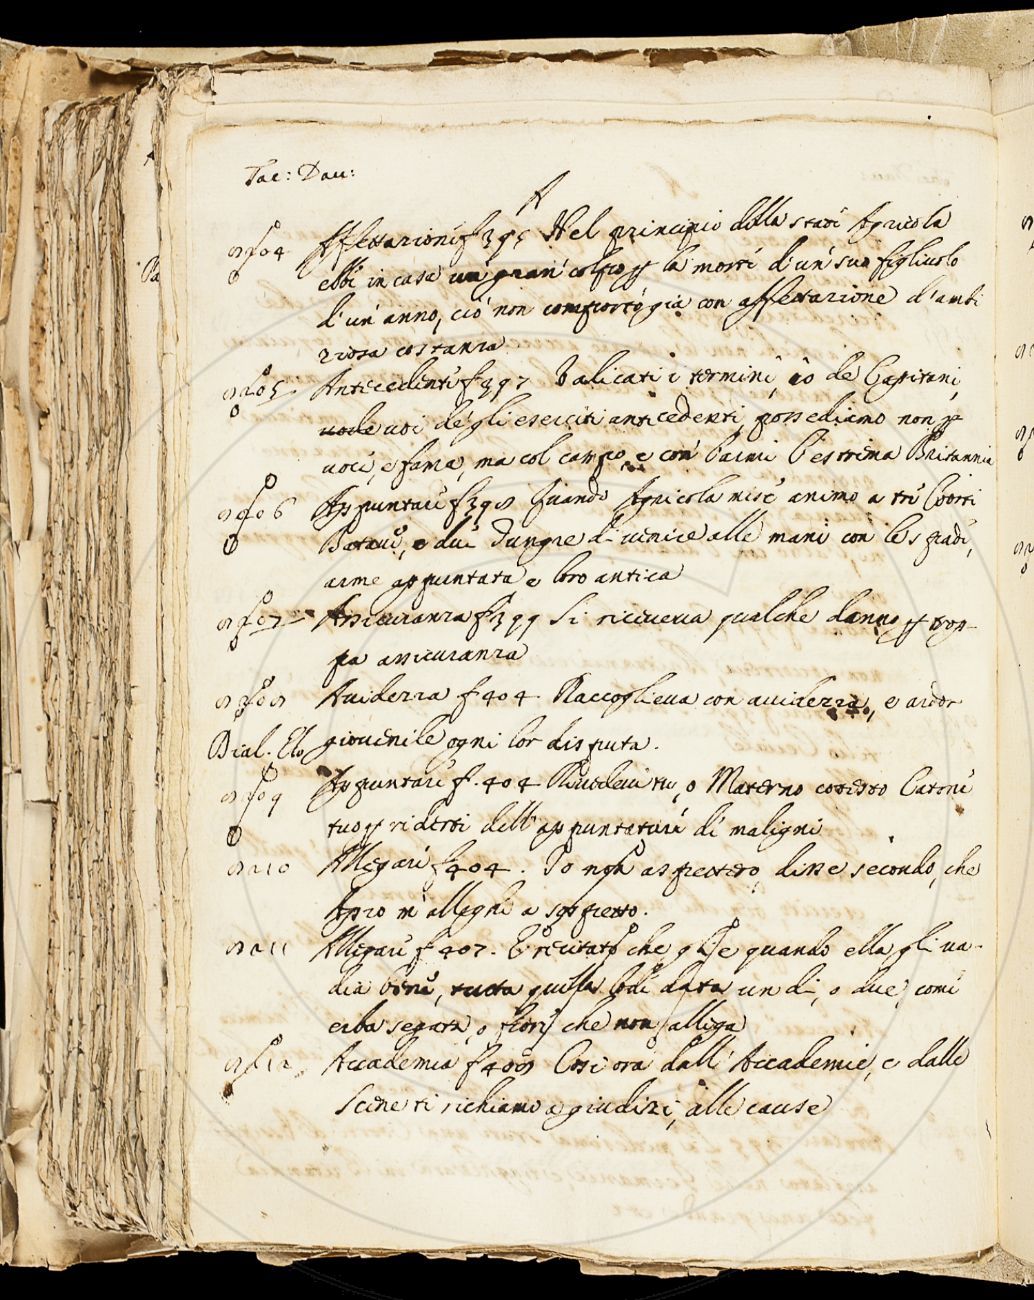 Tac: Dau:
A
Affettazioni f 395 Nel principio della stadi Agricola
ebbi in casa un gran colpo la morti d'un suo figliuolo
d'un anno, ciò non comportò già con affettazione d'ambi
ziosa costanza
Antecedenti f 397 Valicati i termini io de Capitani,
voi degli eserciti antecedenti possediamo non p
voci, e fama, ma col campo, e con l'armi l'estrema Britannia
Appuntari f 398 Quando Agricola misi animo a tri Coorti
Batavi, e dui Tungre di venire alle mani con le spadi,
arme appuntata e loro antica
Assicuranza f 399 Si riceveva qualche danno p trop-
pa assicuranza
Avidezza f 404 Raccoglieva con avidezza, e ardor
Dial. Elo giovenile ogni lor disputa.
Appuntari f. 404 tu, o Materno cotesto Catone
tuo p riderti dell'appuntaturi di maligni
210 Allegari f 404. Io non aspetterò, disse secondo, che
Apro m'alleghi a sospetto.
211 Allegari f 407. che quando ella gli va-
dia beni, tutta quilla lodi data un dì, o due, comi
erba segata, o fiori, che non alliga
212 Accademia f 408 Cosi ora dall'Accademie, e dalle
Scene ti richiamo a giudizi, alle cause